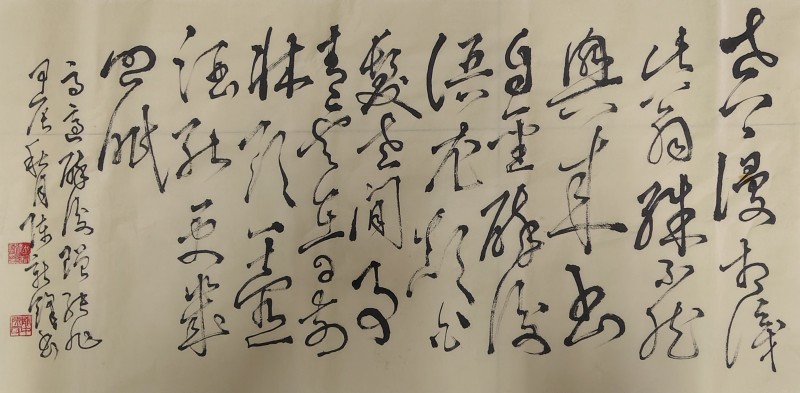 世上漫相識
此翁殊不然
興來書
自聖醉後
語尤顛白
髮老閒事
青雲在目前
牀頭一壺
酒能更幾
回眠
高適醉後贈張旭
甲辰秋月陳新鋒書